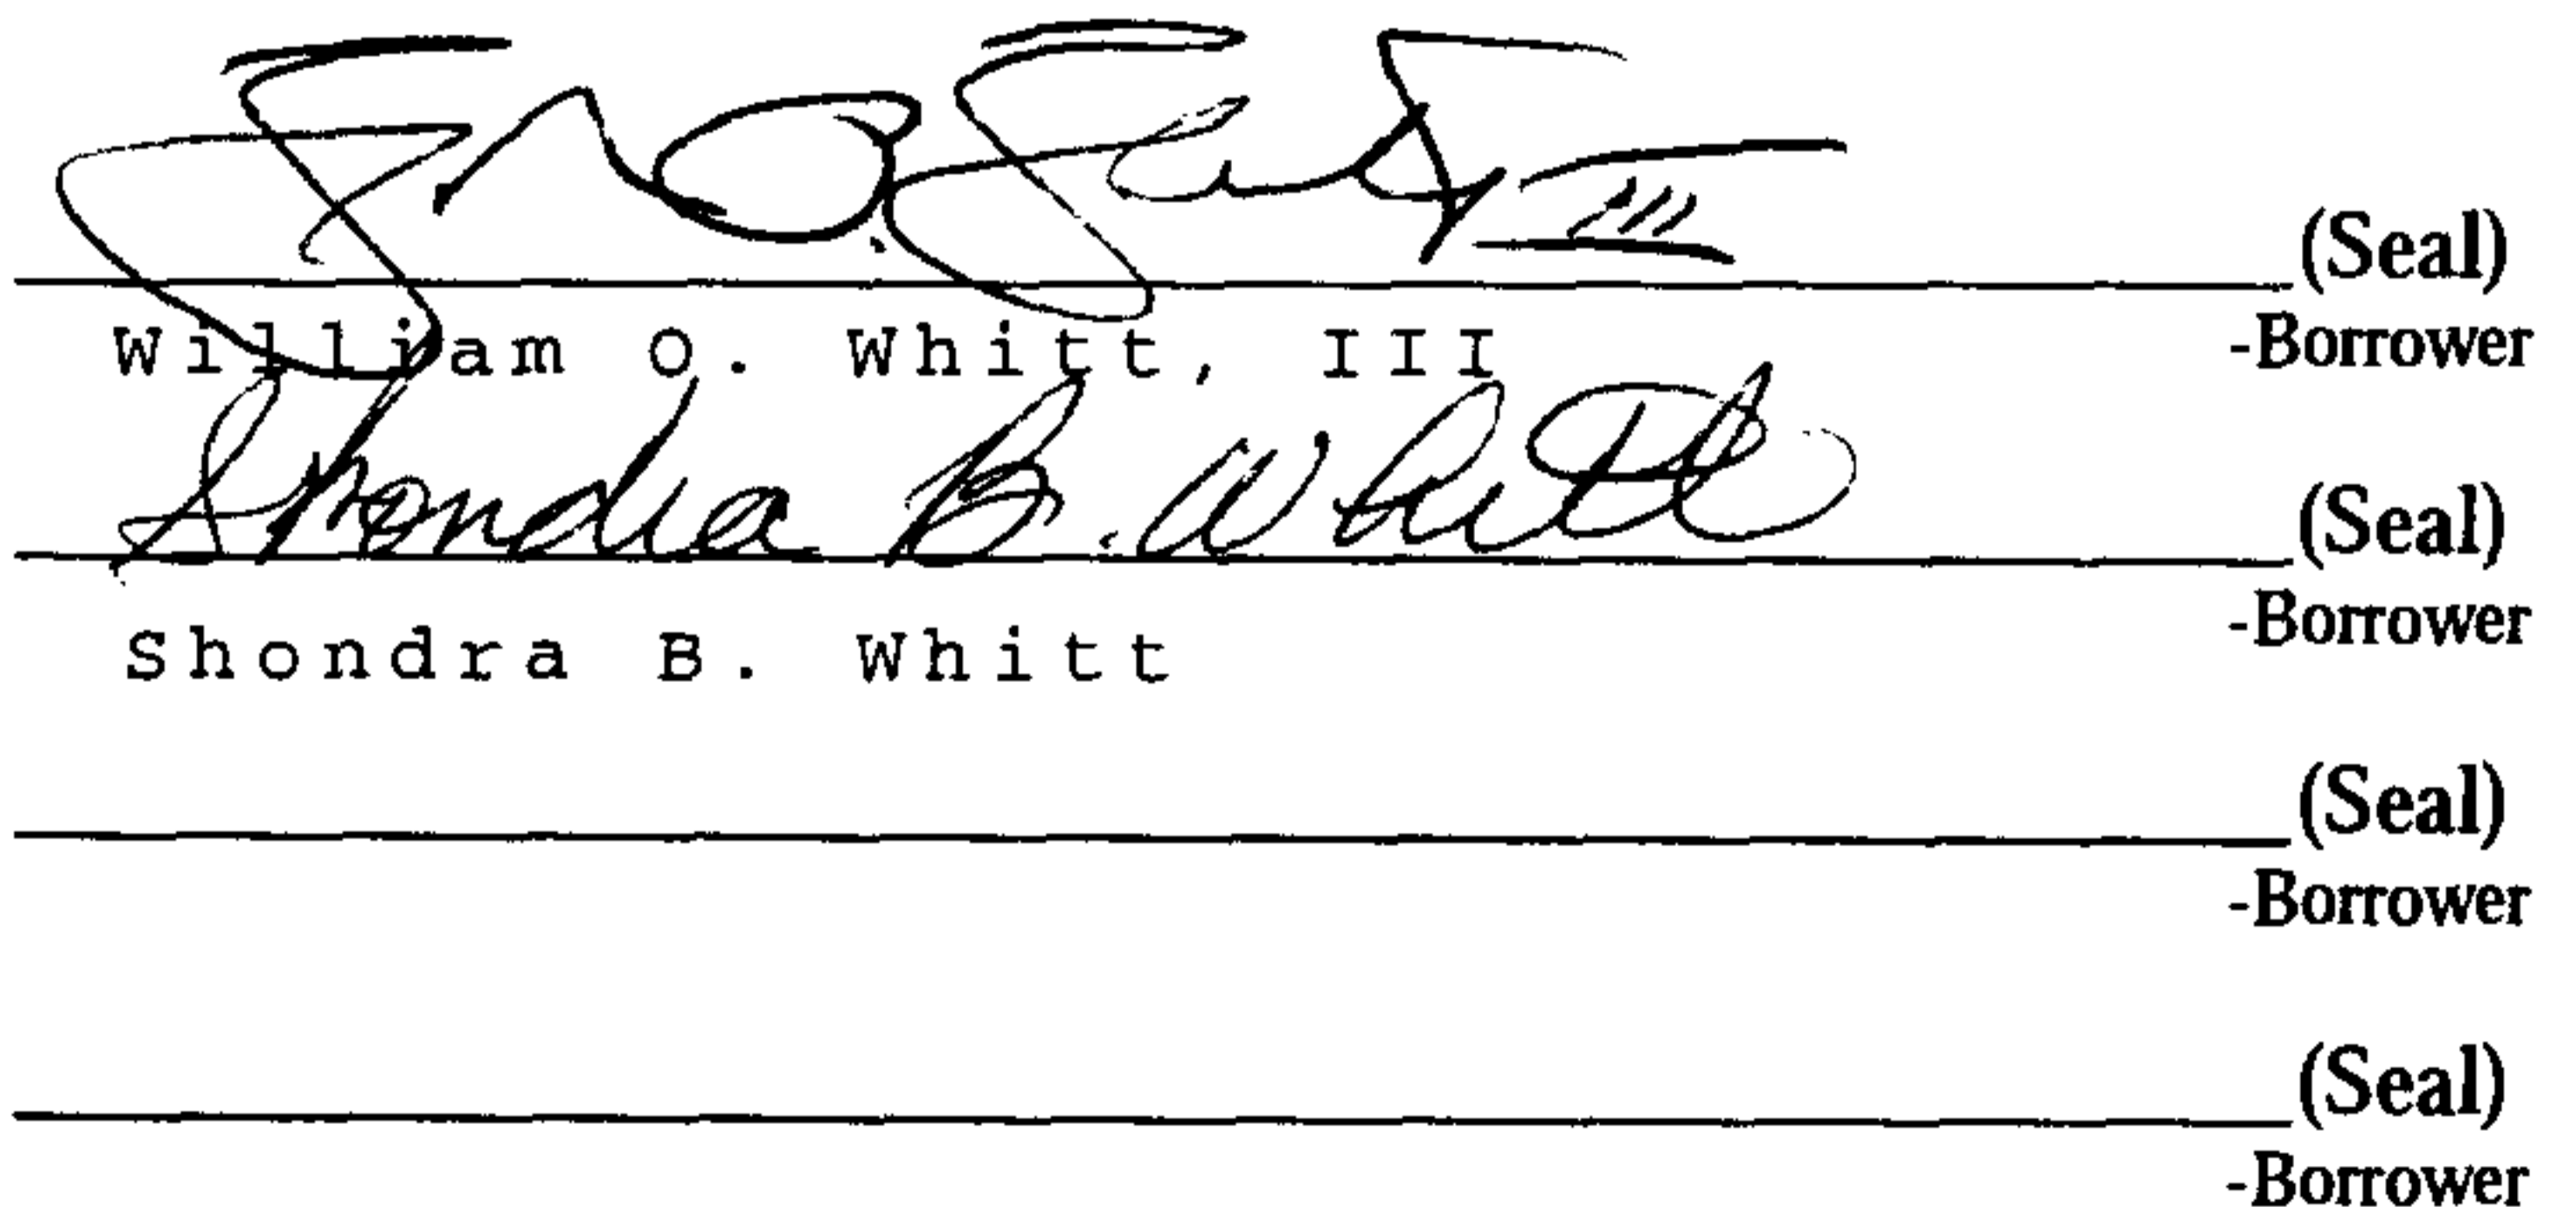 (Seal)
William O. Whitt, III -Borrower
Shondra B. Whitt (Seal)
-Borrower
Shondra B. Whitt
(Seal)
-Borrower
(Seal)
-Borrower